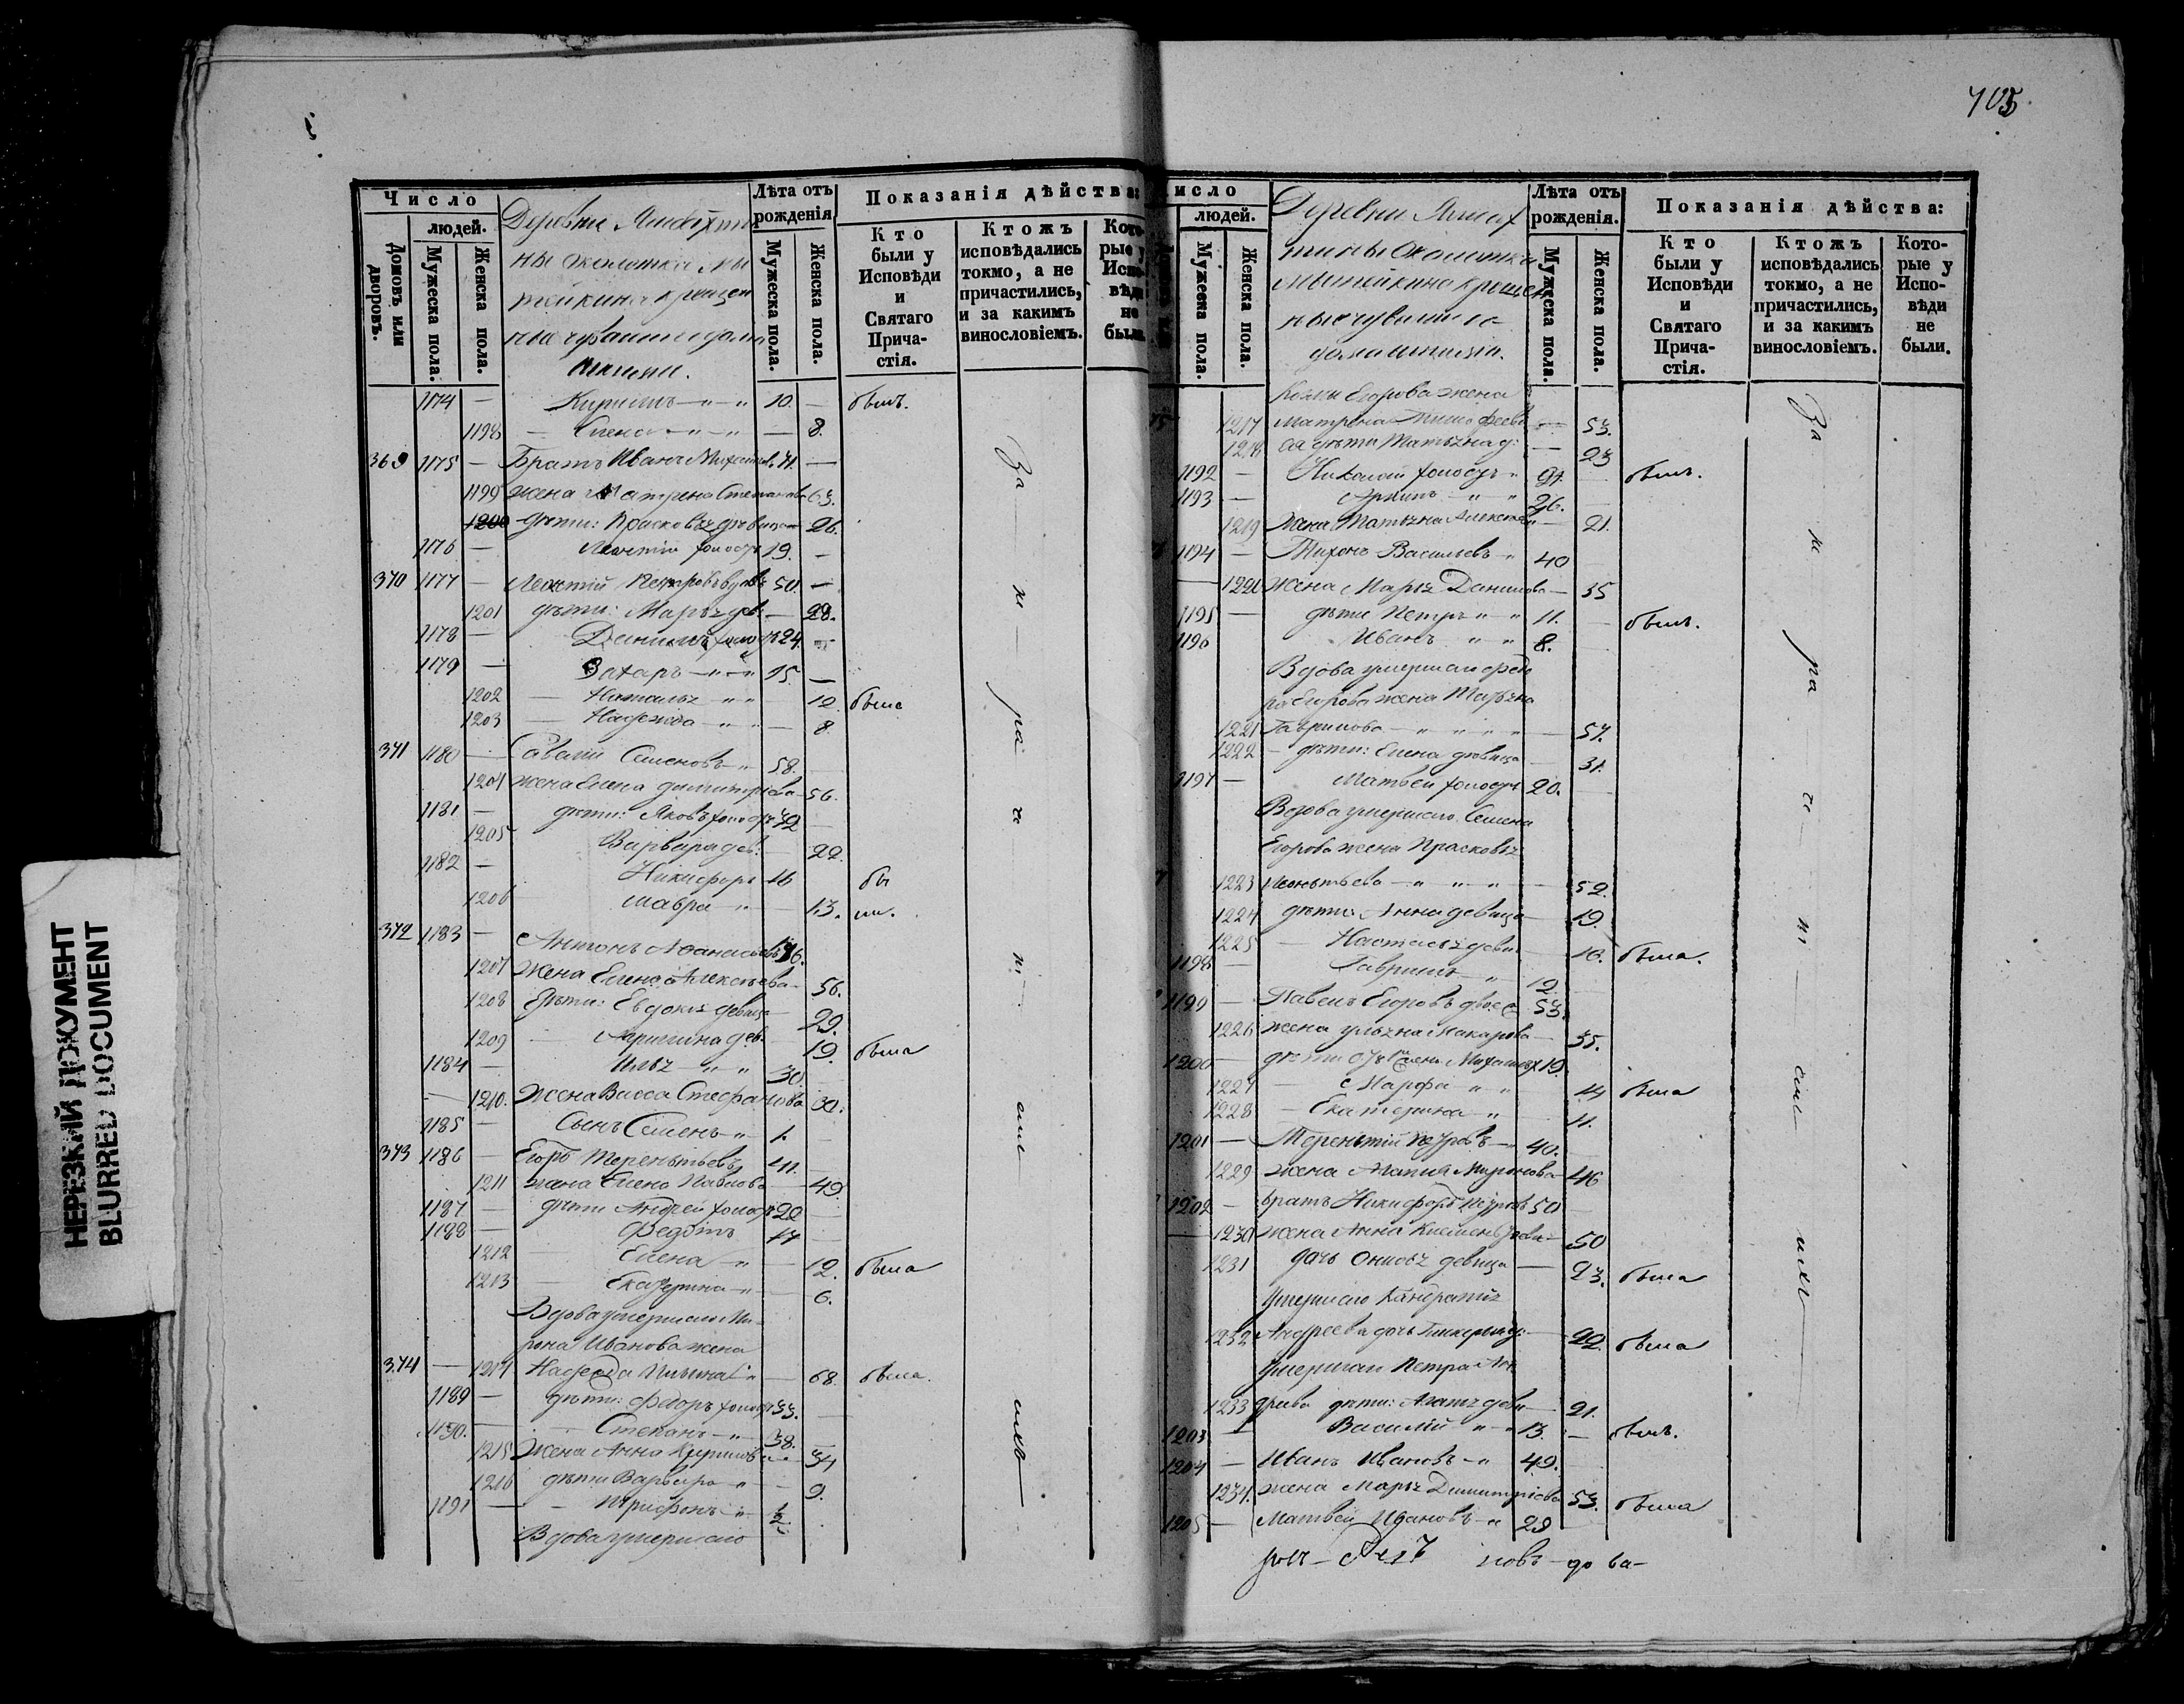 НЕРЕЗКИЙ ДОКУМЕНТ
BLURRED DOCUMENT
705
Число
людей.
Домовъ или дворовъ.
Мужеска пола.
Женска пола.
Деревни
ны околотка Мы
тейкина крещен
ные чуваши и дома
шніи.
Лѣта отъ рожденія
Мужеска пола.
Женска пола.
Показанія дѣйства:
Кто были у Исповѣди и Святаго Причастія.
Ктожъ исповѣдались токмо, а не причастились, и за какимъ винословіемъ.
Которые у Исповѣди не были.
1174 — Кирилъ — " " 10. — былъ.
1198 — Елена — " " — 8.
369 1175 — Братъ Иванъ Михайловъ 71. —
1199 жена Матрена Степанова 63.
1200 дѣти: Прасковья дѣвица — 26.
1176 — Леонтій холостъ 19. —
370 1177 — Леонтій Петровъ вдовъ 50. —
1201 дѣти: Марья дев: — 28.
1178 — Данилъ холостъ 24.
1179 — Захаръ — " " 15. —
1202 — Наталья " " 12 была
1203 — Надежда — " " — 8
371 1180 — Савелій Семеновъ — " 58. —
1204 жена Елена Димитріева — 56.
1181 — дѣти: Яковъ холостъ 32 —
1205 Варвара дев: — 22.
1182 — Никифоръ 16 бы
1206 Мавра — " — 13. ли.
372 1183 — Антонъ Афанасьевъ 56.
1207 Жена Елена Алексѣева — 56.
1208 Дѣти: Евдокія девица 29.
1209 — Агрипина дев. 19. была
1184 — Илья " " 30.
— 1210. Жена Васса Стефанова 30.
1185 — Сынъ Семенъ — " 1.
373 1186 — Егоръ Терентьевъ 41. —
1211 жена Елена Павлова — 49.
1187 — дѣти Андрей холостъ 22 —
1188 — Федотъ 17 —
1212 Елена — " — 12. была
1213 — Екатерина — " — 6.
Вдова умершаго Ми
рона Иванова жена
374 — 1214 Надежда Ильина " — 68. была.
1189 — дѣти: Федоръ холостъ 33. —
1190. — Степанъ — " 38. —
1215 Жена Анна Кирилова — 34
1216 дѣти Варвара — " — 9.
1191 — — Трифонъ — " ½.
Вдова умершаго
За не ра че ні емъ
Число
людей.
Мужеска пола.
Женска пола.
Деревни
тины Околотка
Мытейкина Крещен
ные чуваши и
домашніи.
Лѣта отъ рожденія.
Мужеска пола.
Женска пола.
Показанія дѣйства:
Кто были у Исповѣди и Святаго Причастія.
Ктожъ исповѣдались токмо, а не причастились, и за какимъ винословіемъ.
Которые у Исповѣди не были.
Козмы Егорова жена
1217 Матрена Тимофеева — 53.
1218 ея дѣти Татьяна д: — 23
1192 — Николай холостъ " 21. — былъ.
1193 — Архипъ — " " 26. —
1219 Жена Татьяна Алексѣева — 21.
1194 — Тихонъ Васильевъ — " 40
— 1220 Жена Марья Данилова — 35
1195 — дѣти Петръ " " 11. — былъ.
1196 Иванъ " " 8. —
Вдова умершаго Федо
ра Егорова жена Татьяна
1221 Гаврилова — " " " " — 57.
1222 — дѣти: Елена дѣвица — 31.
1197 — Матвей холостъ 20. —
Вдова умершаго Семена
Егорова жена Прасковья
1223 Леонтьева — " " " — 52.
1224 дѣти: Анна девица — 19.
1225 — Наталья девиц 16. была.
1198 — Гаврилъ — " 12.
1199 — Павелъ Егоровъ 53.
1226 жена Ульяна Макарова — 35.
1200 — 19.
1227 — Марфа " " 14 была
1228 — Екатерина " 11.
1201 — Терентій Петровъ — 40. —
1229 жена Миронова — 46
1202 — братъ Никифоръ Петровъ 50 —
— 1230 жена Анна Климентьева — 50
1231 дочь девица — 23. была
умершаго Кандратія
1232 Андреева дочь — 22. была
умершаго Петра Ан
1233 дреева дѣти: Агатья девиц — 21.
1203 — Василій " " 13. — былъ.
1204 — Иванъ Ивановъ — " 49.
1234. жена Марья Димитріева 53. была
1205 — Матвей Ивановъ — " 28 —
За не ра че ні емъ